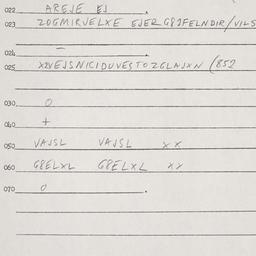 022 AREJE EJ.
023 ZOGMIRJELXE EJER G8JFELNDIR/VILS
024 —
025 XZVEJSNICIDUVESTOZGLAJXN (852
030 O
040 +
050 VAJSL VAJSL XX
060 G8ELXL G8ELXL XX
070 O